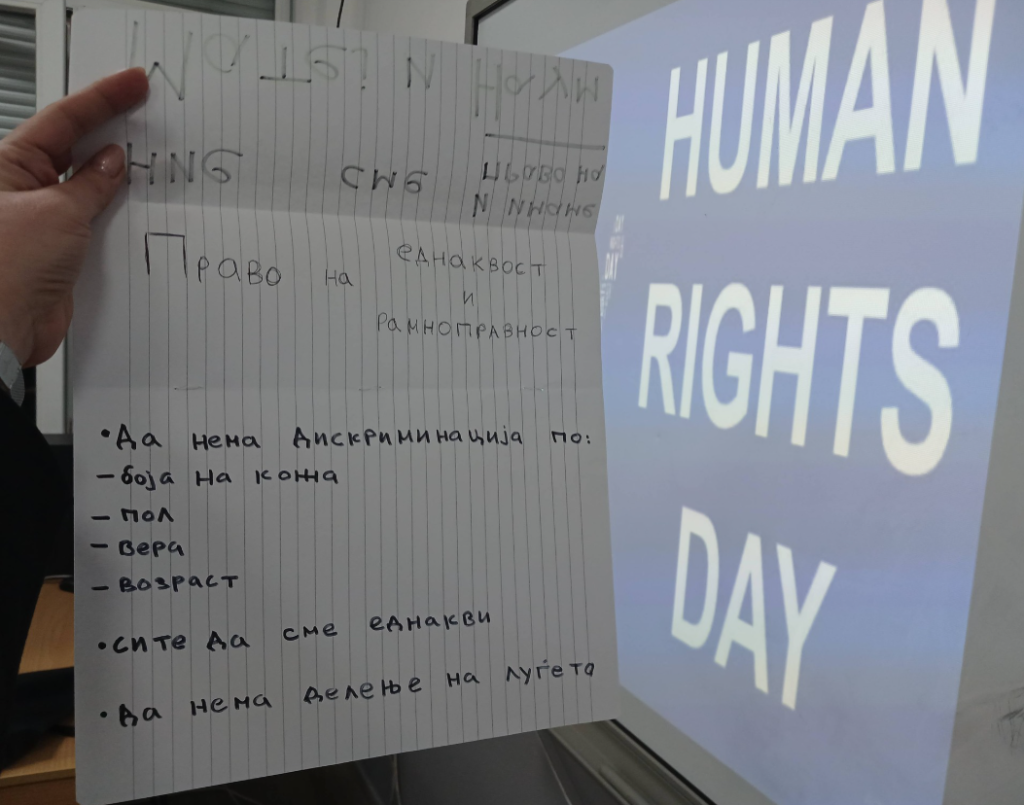 НИЕ СМЕ
И ИМАМЕ
право на
Право на еднаквост
и
рамноправност
•Да нема дискриминација по:
- боја на кожа
- пол
- вера
- возраст
•сите да сме еднакви
•да нема делење на луѓето
HUMAN
RIGHTS
DAY